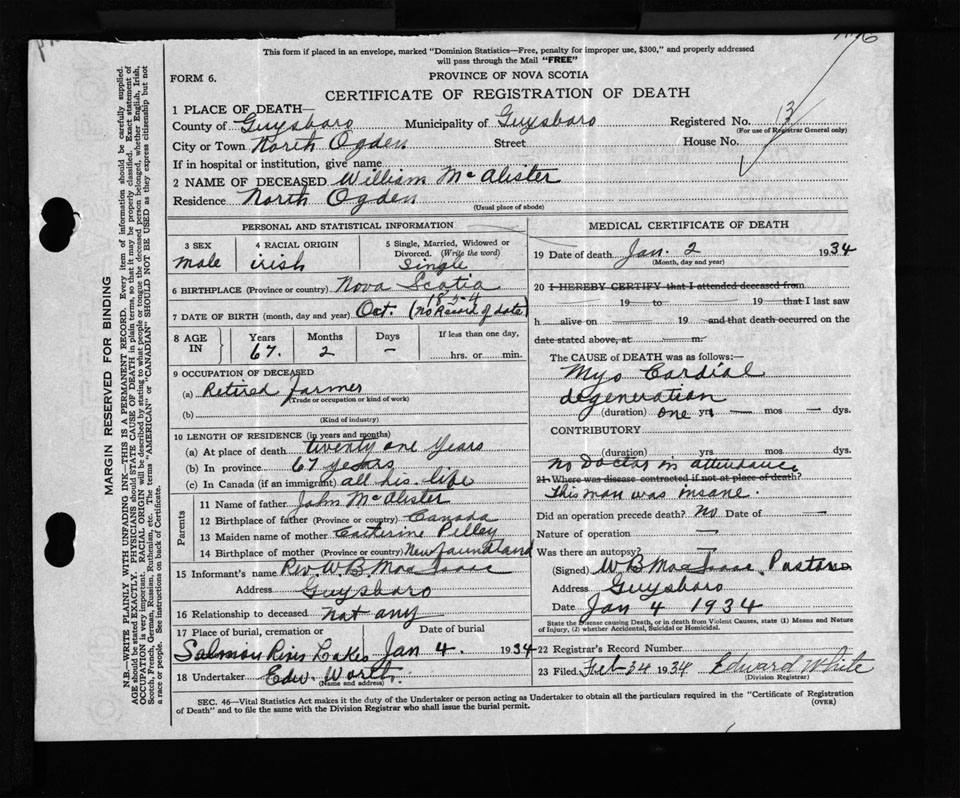 This form if placed in an envelope, marked "Dominion Statistics—Free, penalty for improper use, $300," and properly addressed
will pass through the Mail "FREE"
FORM 6.
PROVINCE OF NOVA SCOTIA
CERTIFICATE OF REGISTRATION OF DEATH
1 PLACE OF DEATH—
County of Guysboro Municipality of Guysboro Registered No. 13
(For use of Registrar General only)
City or Town North Ogden Street House No.
If in hospital or institution, give name
2 NAME OF DECEASED William McAlister
Residence North Ogden
(Usual place of abode)
PERSONAL AND STATISTICAL INFORMATION
3 SEX 4 RACIAL ORIGIN 5 Single, Married, Widowed or Divorced. (Write the word)
Male irish Single
6 BIRTHPLACE (Province or country) Nova Scotia
7 DATE OF BIRTH (month, day and year) Oct. 1854 (no Record of date)
8 AGE IN Years Months Days If less than one day,
67. 2 — hrs. or min.
9 OCCUPATION OF DECEASED
(a) Retired farmer
(Trade or occupation or kind of work)
(b)
(Kind of industry)
10 LENGTH OF RESIDENCE (in years and months)
(a) At place of death twenty one years
(b) In province 67 years
(c) In Canada (if an immigrant) all his life
Parents
11 Name of father John McAlister
12 Birthplace of father (Province or country) Canada
13 Maiden name of mother Catherine Pelley
14 Birthplace of mother (Province or country) Newfoundland
15 Informant's name Rev W.B. MacIsaac
Address Guysboro
16 Relationship to deceased not any
17 Place of burial, cremation or Date of burial
Salmon River Lakes Jan 4. 1934
18 Undertaker Edw. Worth.
(Name and address)
MEDICAL CERTIFICATE OF DEATH
19 Date of death Jan. 2 1934
(Month, day and year)
20 I HEREBY CERTIFY that I attended deceased from
19 to 19 that I last saw
h alive on 19 and that death occurred on the
date stated above, at m.
The CAUSE of DEATH was as follows:—
Myo Cardial
degeneration
(duration) one yrs — mos — dys.
CONTRIBUTORY
(duration) yrs mos dys.
no Doctor in attendance
21 Where was disease contracted if not at place of death?
This man was insane.
Did an operation precede death? No Date of —
Nature of operation —
Was there an autopsy? —
(Signed) W B MacIsaac, Pastor
Address Guysboro
Date Jan 4 1934
State the Disease causing Death, or in death from Violent Causes, state (1) Means and Nature
of Injury, (2) whether Accidental, Suicidal or Homicidal.
22 Registrar's Record Number
23 Filed Feb 24 1934 Edward White
(Division Registrar)
SEC. 46—Vital Statistics Act makes it the duty of the Undertaker or person acting as Undertaker to obtain all the particulars required in the "Certificate of Registration
of Death" and to file the same with the Division Registrar who shall issue the burial permit. (OVER)
MARGIN RESERVED FOR BINDING
N.B.—WRITE PLAINLY WITH UNFADING INK—THIS IS A PERMANENT RECORD. Every item of information should be carefully supplied.
AGE should be stated EXACTLY. PHYSICIANS should STATE CAUSE OF DEATH in plain terms, so that it may be properly classified. Exact statement of
OCCUPATION is very important. RACIAL ORIGIN will be described by stating to what people or tongue the deceased person belonged, whether English, Irish,
Scotch, French, German, Russian, Ruthenian, etc. The terms "AMERICAN" or "CANADIAN" SHOULD NOT BE USED as they express citizenship but not
a race or people. See instructions on back of Certificate.